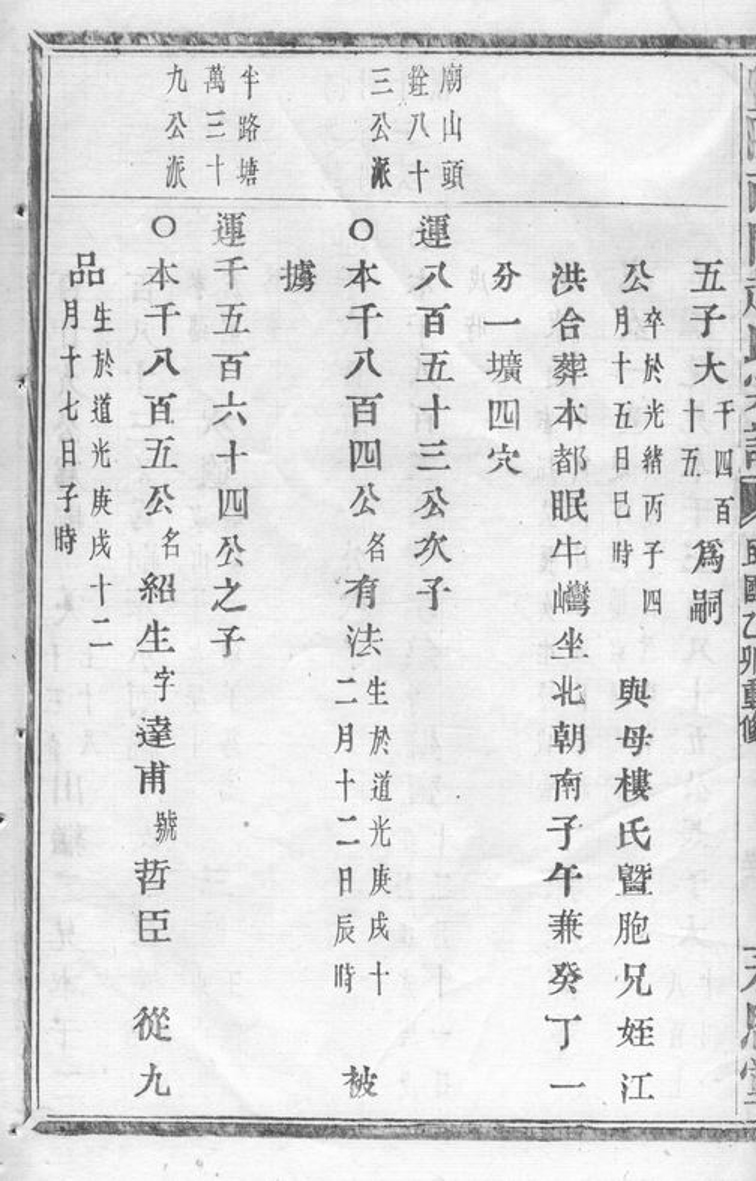 五子大千四百十五為嗣
公卒於光緒丙子四月十五日巳時與母樓氏暨胞兄姪江
洪合葬本都眠牛巒坐北朝南子午兼癸丁一
分一壙四穴
廟山頭
銓八十
三公派
運八百五十三公次子
○本千八百四公名有法生於道光庚戌十二月十二日辰時被
擄
半路塘
萬三十
九公派
運千五百六十四公之子
○本千八百五公名紹生字達甫號哲臣從九
品生於道光庚戌十二月十七日子時